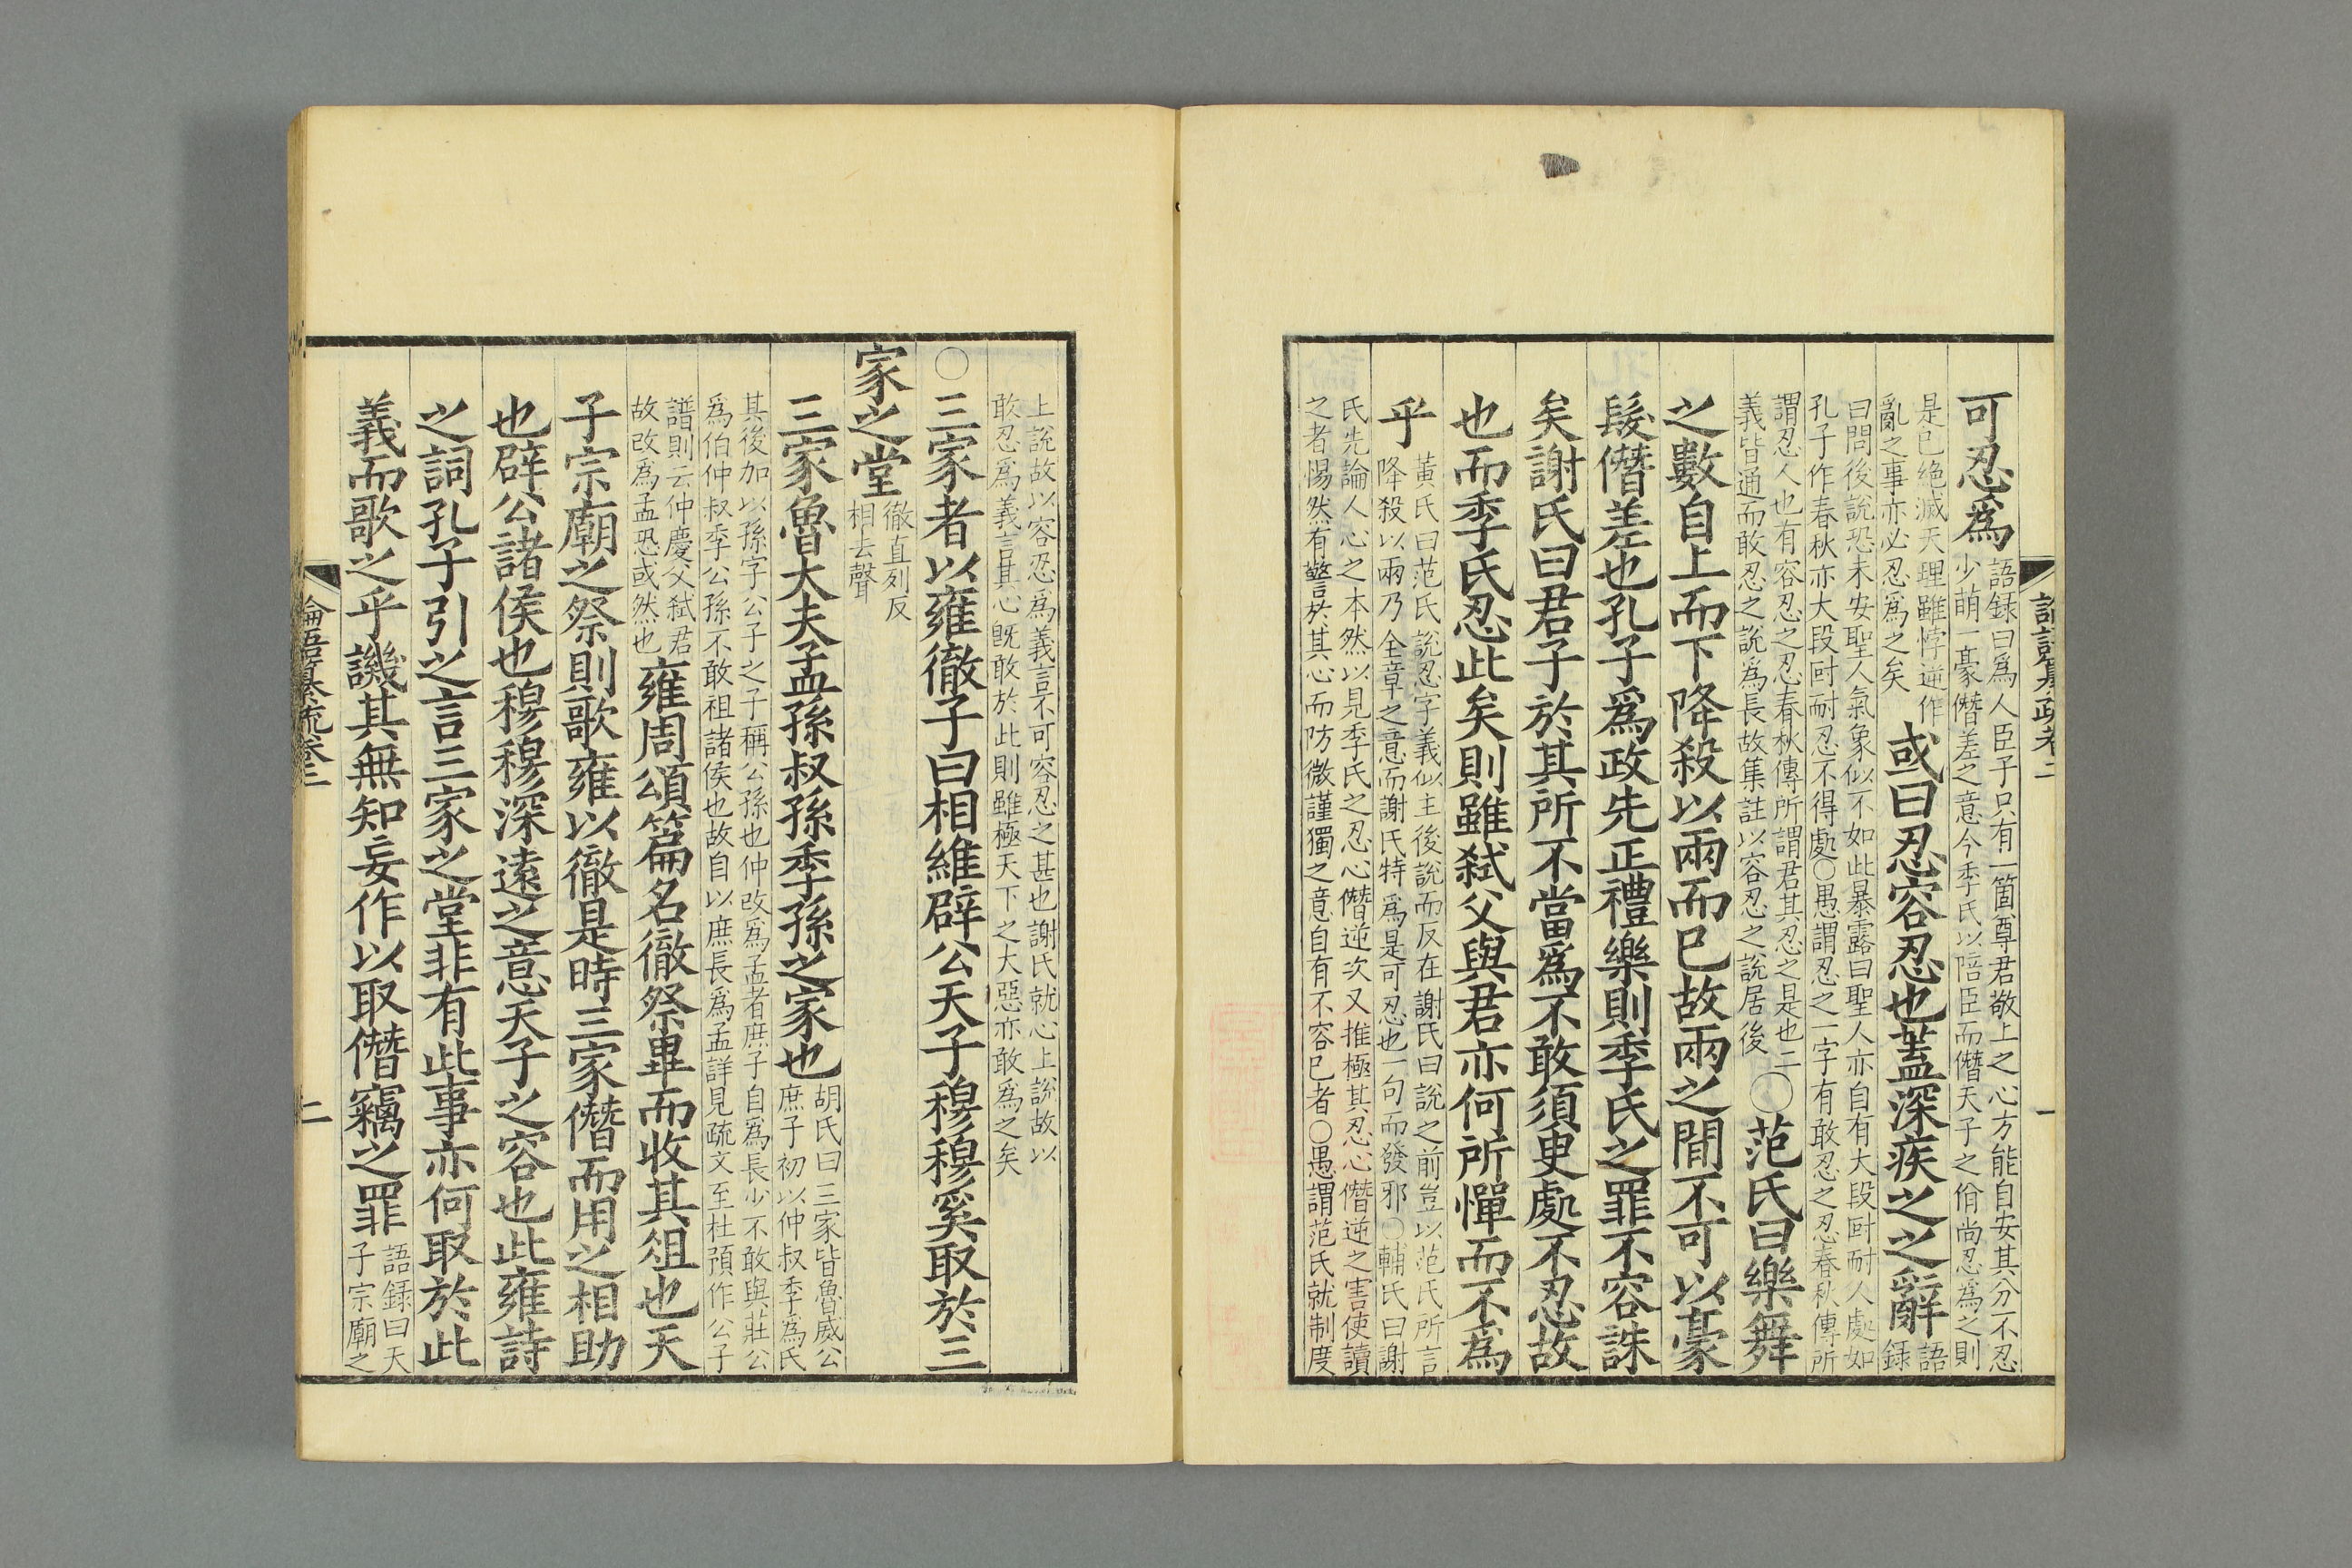 可忍為
語録曰爲人臣子只有一箇尊君敬上之心方能自安其分不忍
少萌一豪僭差之意今季氏以陪臣而僭天子之佾尚忍為之則
是已絶滅天理雖悖逆作
亂之事亦必忍爲之矣
或曰忍容忍也蓋深疾之之辭
語
録
曰問後說恐未安聖人氣象似不如此暴露曰聖人亦自有大段叵耐人處如
孔子作春秋亦大段叵耐忍不得處○愚謂忍之一字有敢忍之忍春秋傳所
謂忍人也有容忍之忍春秋傳所謂君其忍之是也二
義皆通而敢忍之說爲長故集註以容忍之說居後
○范氏曰樂舞
之數自上而下降殺以兩而巳故兩之間不可以豪
髮僭差也孔子爲政先正禮樂則季氏之罪不容誅
矣謝氏曰君子於其所不當爲不敢須臾處不忍故
也而季氏忍此矣則雖弒父與君亦何所憚而不為
乎
黃氏曰范氏說忍字義似主後說而反在謝氏曰說之前豈以范氏所言
降殺以兩乃全章之意而謝氏特爲是可忍也一句而發邪○輔氏曰謝
氏先論人心之本然以見季氏之忍心僭逆次又推極其忍心僭逆之害使讀
之者惕然有警於其心而防微謹獨之意自有不容巳者○愚謂范氏就制度
上說故以容忍爲義言不可容忍之甚也謝氏就心上說故以
敢忍爲義言其心旣敢於此則雖極天下之大惡亦敢為之矣
○三家者以雍徹子曰相維辟公天子穆穆奚取於三
家之堂
徹直列反
相去聲
三家魯大夫孟孫叔孫季孫之家也
胡氏曰三家皆魯威公
庶子初以仲叔季爲氏
其後加以孫字公子之子稱公孫也仲改爲孟者庶子自爲長少不敢與莊公
爲伯仲叔季公孫不敢祖諸侯也故自以庶長爲孟詳見疏文至杜預作公子
譜則云仲慶父弑君
故改爲孟恐或然也
雍周頌篇名徹祭畢而收其俎也天
子宗廟之祭則歌雍以徹是時三家僭而用之相助
也辟公諸侯也穆穆深遠之意天子之容也此雍詩
之詞孔子引之言三家之堂非有此事亦何取於此
義而歌之乎譏其無知妄作以取僭竊之罪
語録曰天
子宗廟之
論語纂疏卷二
二